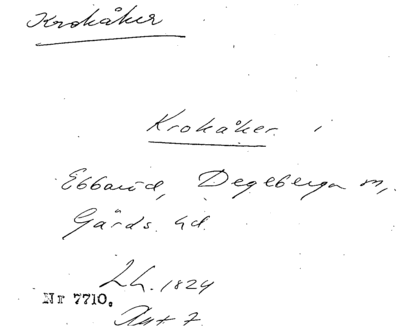 Krokåker
Krokåker i
Ebbarid, Degeberga sn,
Gärds hd.
Lh. 1824
Nr 7710.
Akt 7